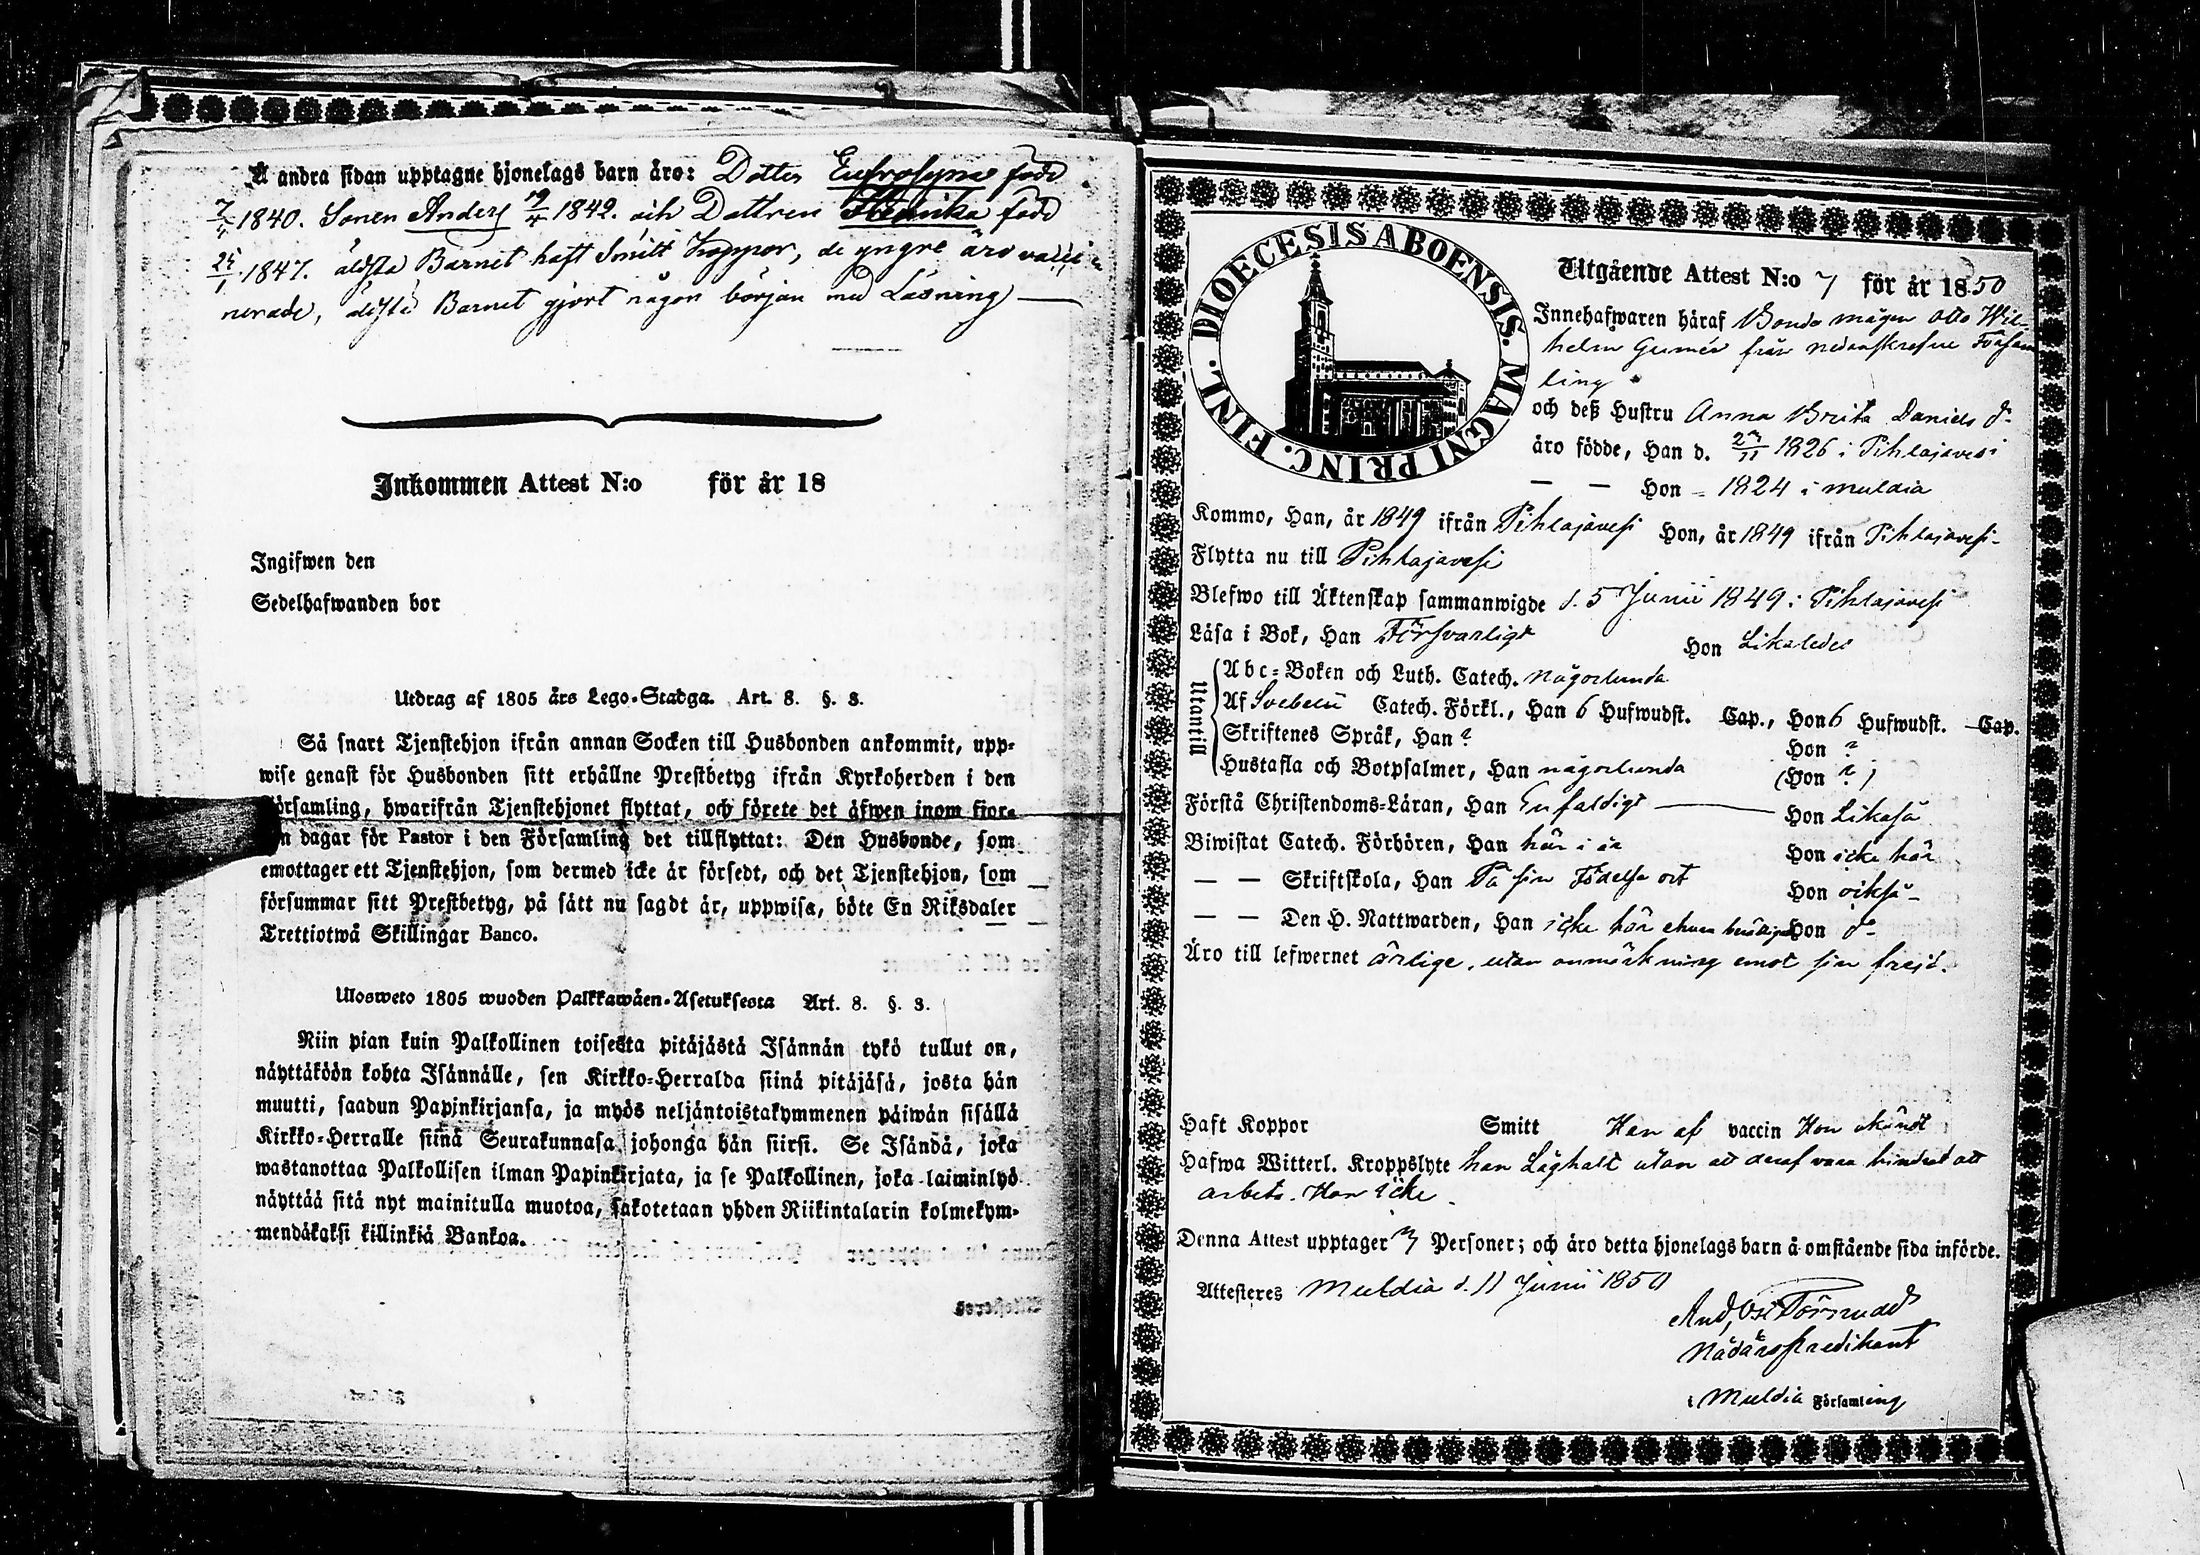 Å andra sidan upptagne hjonelags barn äro: Dotter Eufrosyne född
7/4 1840. Sonen Anders 19/4 1842. och Dottren Fredrika född
25/1 1847. äldsta Barnet haft Smitt Koppor, de yngre äro vacci-
nerade, äldsta Barnet gjort någon början med Läsning
Inkommen Attest N:o för år 18
Ingifwen den
Sedelhafwanden bor
Utdrag af 1805 års Lego-Stadga. Art. 8. §. 3.
Så snart Tjenstehjon ifrån annan Socken till Husbonden ankommit, upp-
wise genast för Husbonden sitt erhållne Prestbetyg ifrån Kyrkoherden i den
Församling, hwarifrån Tjenstehjonet flyttat, och förete det äfwen inom fjor-
dagar för Pastor i den Församling det tillflyttat: Den Husbonde, som
emottager ett Tjenstehjon, som dermed icke är försedt, och det Tjenstehjon, som
försummar sitt Prestbetyg, på sätt nu sagdt är, uppwisa, böte En Riksdaler
Trettiotwå Skillingar Banco.
Ulosweto 1805 wuoden Palkkawäen-Asetuksesta Art. 8. §. 3.
Niin pian kuin Palkollinen toisesta pitäjästä Isännän tykö tullut on,
näyttäköön kohta Isännälle, sen Kirkko-Herralda siinä pitäjäsä, josta hän
muutti, saadun Papinkirjansa, ja myös neljäntoistakymmenen päiwän sisällä
Kirkko-Herralle siinä Seurakunnasa johonga hän siirsi. Se Isändä, joka
wastanottaa Palkollisen ilman Papinkirjata, ja se Palkollinen, joka laiminlyö
näyttää sitä nyt mainitulla muotoa, sakotetaan yhden Riikintalarin kolmekym-
mendäkaksi killinkiä Bankoa.
DIOECESIS ABOENSIS. MAGNI PRINC. FINL.
Utgående Attest N:o 7 för år 1850
Innehafwaren häraf Bonde mågen Otto Wil-
helm Gumér från nedanskrefne Församl
ling
och deß Hustru Anna Brita Daniels d:
äro födde, Han d. 27/11 1826 i Pihlajavesi
— — Hon - 1824 i Muldia
Kommo, Han, år 1849 ifrån Pihlajavesi Hon, år 1849 ifrån Pihlajavesi
Flytta nu till Pihlajavesi
Blefwo till Äktenskap sammanwigde d. 5 Junii 1849 i Pihlajavesi
Läsa i Bok, Han Försvarligt Hon Likaledes
Utantill
Abc-Boken och Luth. Catech. någorlunda
Af Svebelii Catech. Förkl., Han 6 Hufwudst. Cap., Hon 6 Hufwudst. Cap.
Skriftenes Språk, Han ? Hon ?
Hustafla och Botpsalmer, Han någorlunda (Hon ?)
Förstå Christendoms-Läran, Han Enfaldigt Hon Likaså
Biwistat Catech. Förhören, Han här i år Hon icke här
— — Skriftskola, Han På sin Födelse ort Hon också
— — Den H. Nattwarden, Han icke här ehuru Hon d:
Äro till lefwernet ärlige, utan anmärkning emot sin frejd.
Haft Koppor Smitt Han af vaccin Hon okändt
Hafwa Witterl. Kroppslyte han Låghalt utan att deraf vara hindrad att
arbeta. Hon icke.
Denna Attest upptager Personer; och äro detta hjonelags barn å omstående sida införde.
Attesteres Muldia d. 11 Junii 1850
And,
Nådårspredikant
i Muldia Församling